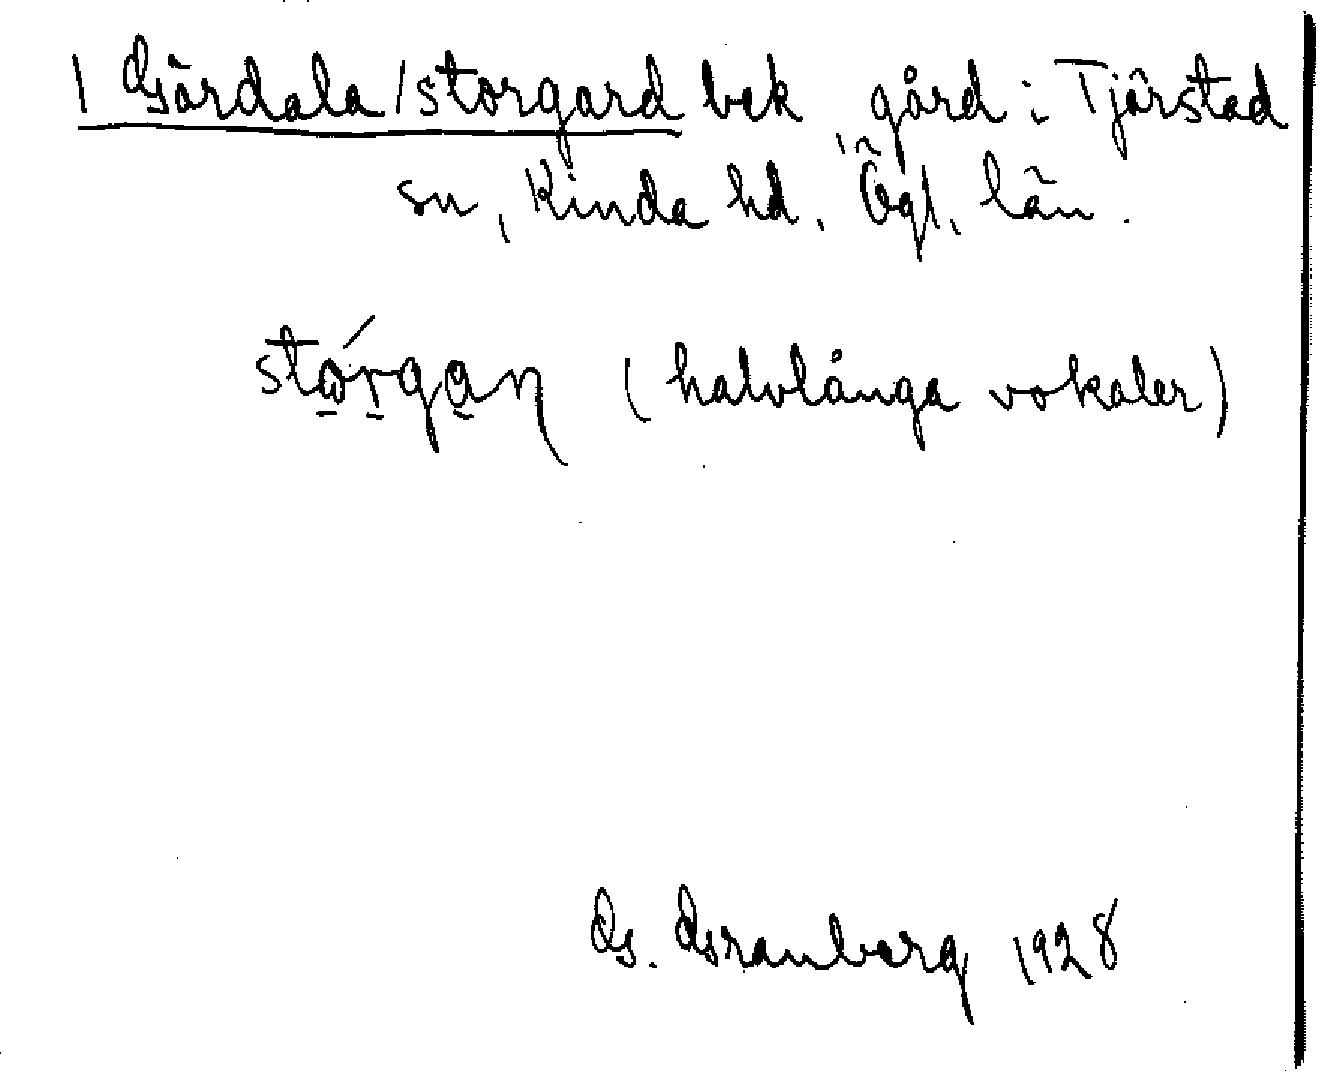 | Gärdala / storgard bek gård i Tjärstad
sn, Kinda hd, Ögl. län.
stórgan (halvlånga vokaler)
G. Granberg 1928